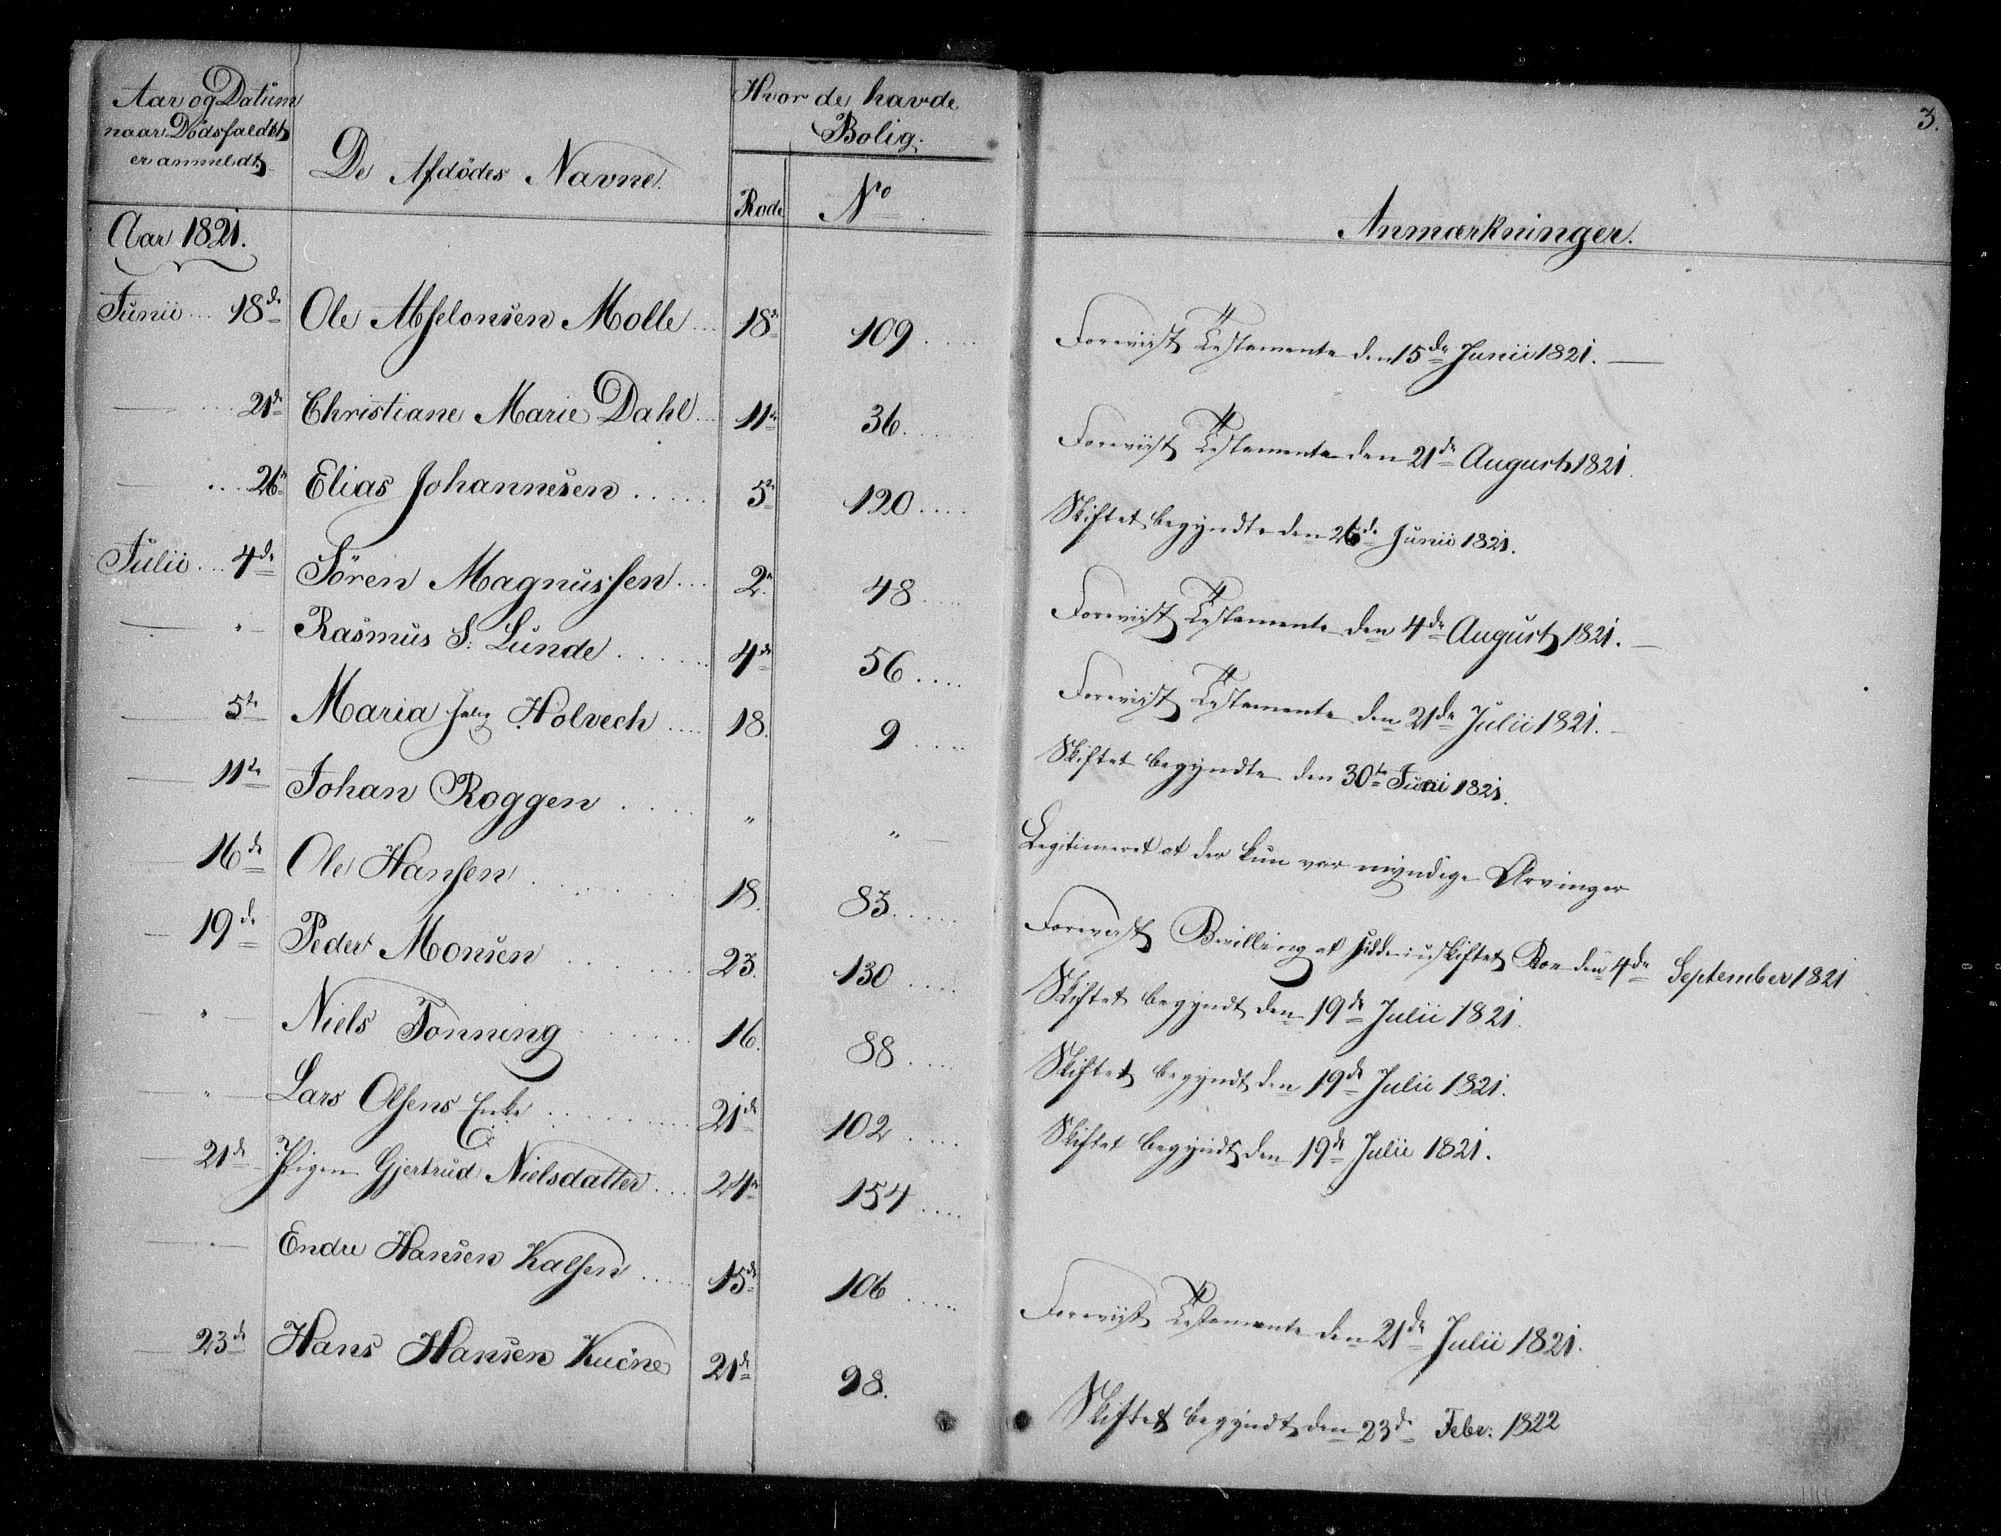 3.
Aar og Datum
naar Dödsfaldet
er anmeldt.
De Afdödes Navne.
Hvor de havde
Bolig.
Rode No
Anmærkninger.
Aar 1821.
Junii ... 18de Ole Abselonsen Molle ... 18de 109 ..... Foreviist Testamente den 15de Junii 1821.
21de Christiane Marie Dahl ... 11te 36 ...... Foreviist Testamente den 21de August 1821.
26de Elias Johannesen ..... 5te 120 .... Skiftet begyndte den 26de Junii 1821.
Julii ... 4de Sören Magnussen ... 2. 48 .... Foreviist Testamente den 4de August 1821.
" Rasmus S: Lunde ...... 4de 56 .... Foreviist Testamente den 21de Julii 1821.
5te Maria Holvech .... 18. 9 .... Skiftet begyndte den 30te Juni 1821.
11te Johan Roggen .... " " Legitimeret at der kun var myndige Arvinger
16de Ole Hansen ........ 18. 83 ..... Foreviist Bevilling at sidde i uskiftet Boe den 4de September 1821
19de Peder Monsen ...... 23. 130 .... Skiftet begyndt den 19de Julii 1821.
" Niels Tonning ...... 16. 88 .... Skiftet begyndt den 19de Julii 1821.
" Lars Olsens Enke ........ 21de 102 ..... Skiftet begyndt den 19de Julii 1821.
21de Pigen Gjertrud Nielsdatter ... 24de 154 ....
" Endre Hansen Kalsen ..... 15de 106 ..... Foreviist Testamente den 21de Julii 1821.
23de Hans Hansen 21de 98. Skiftet begyndt den 23de Febr: 1822